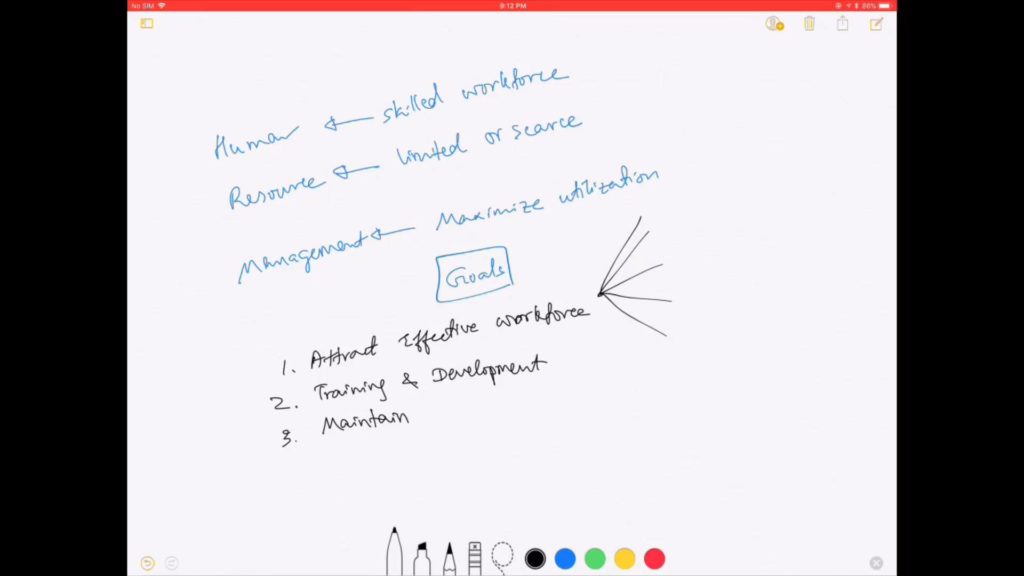 No SIM 9:12 PM 86%
Human ← skilled workforce
Resource ← limited or scarce
Management ← Maximize utilization
Goals
1. Attract Effective workforce
2. Training & Development
3. Maintain